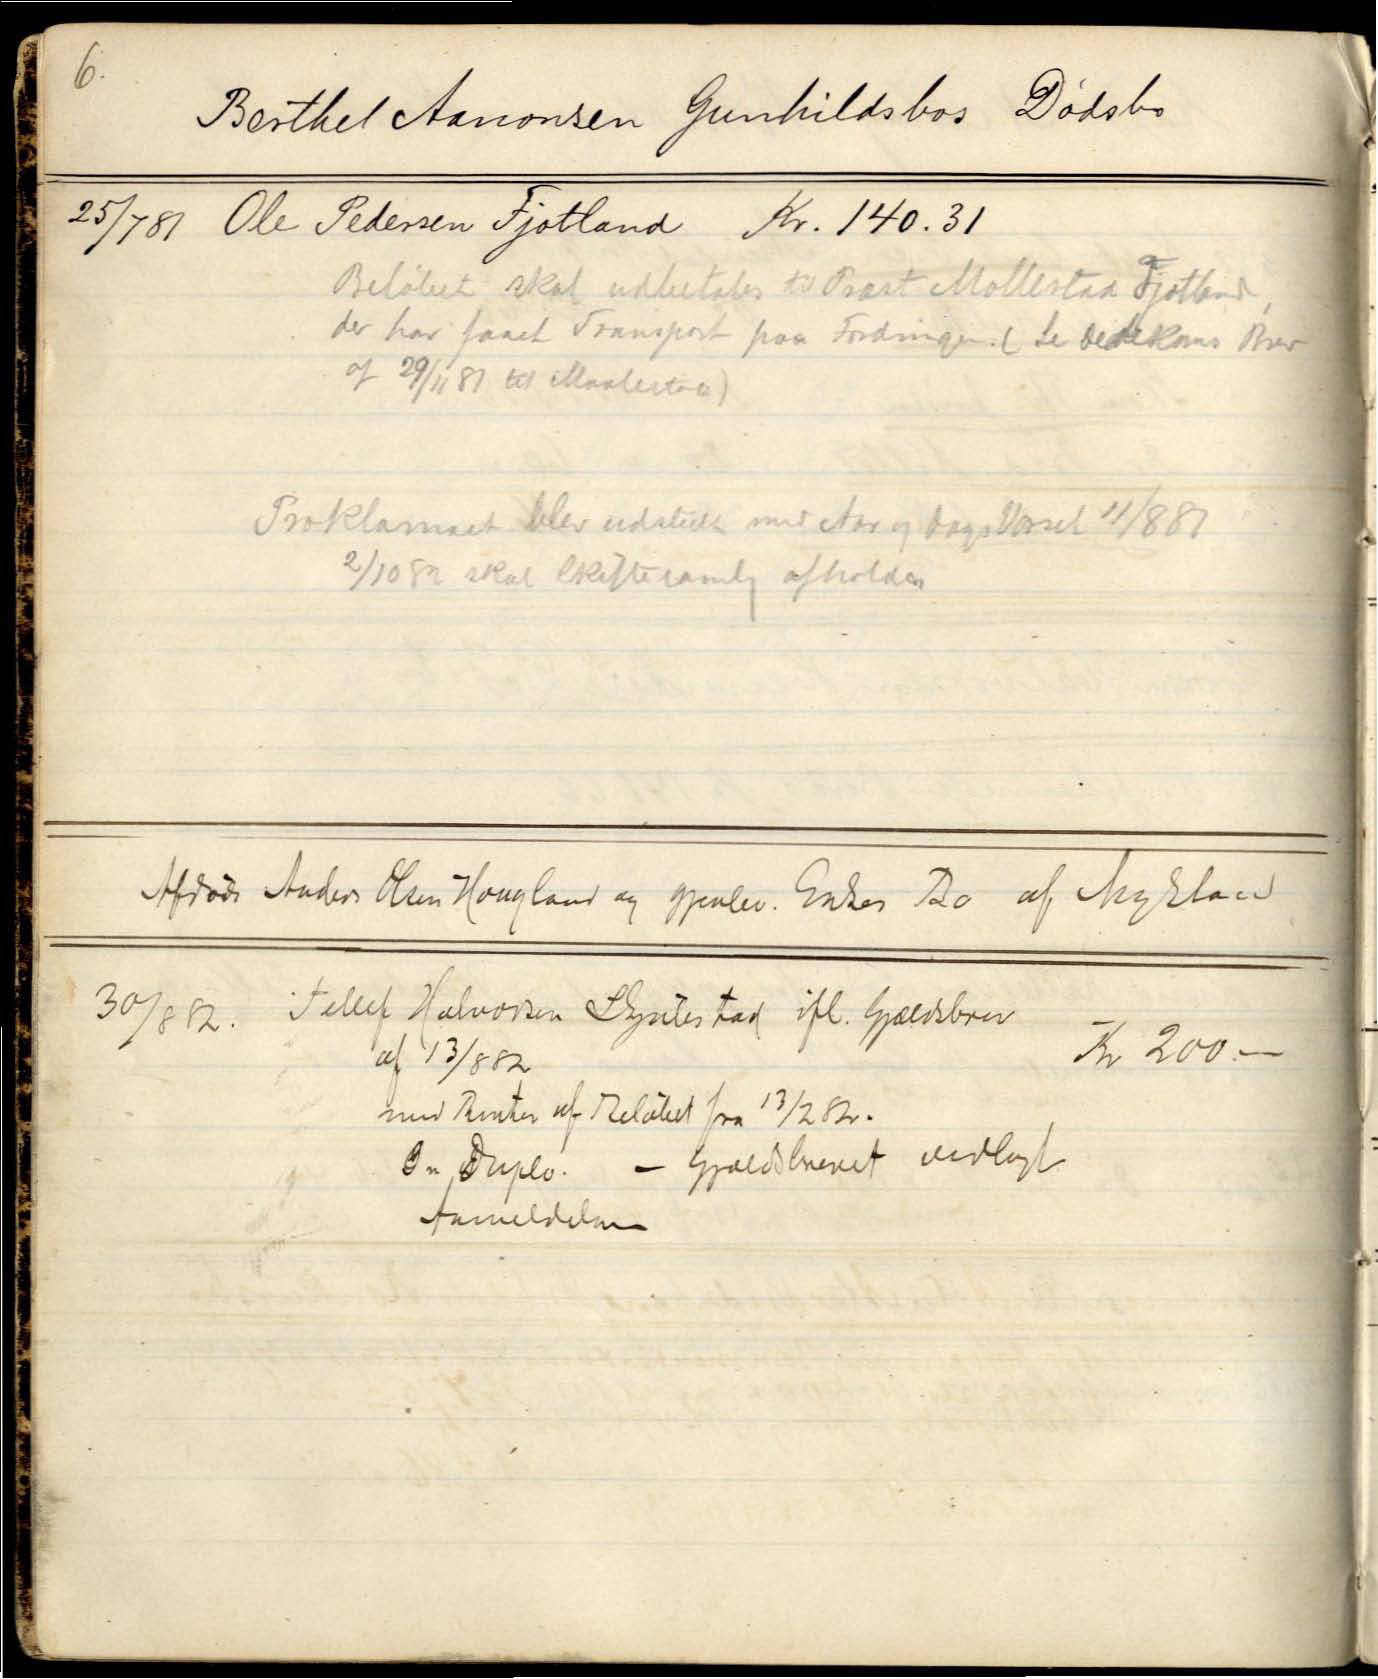 6.
Berthel Aanonsen Gunhildsbos Dødsbo
25/781 Ole Pedersen Fjotland Kr. 140.31
Beløbet skal udbetales til Præst Mollestad Fjotland,
der har faaet Transport paa Fordringen. (Se Brev
af 29/11 81 til
Proklamaet blev udstedt med Aar og Dags Varsel 11/881
2/1082 skal Skiftesamlg afholdes
Afdøde Anders Olsen Hougland og gjenlev. Enkes Bo af Nykland
30/882. Tellef Halvorsen ifl. Gjældsbrev
af 13/882 Kr 200.—
med Renter af Beløbet fra 13/282.
In Duplo. — Gjældsbrevet vedlagt
Anmeldelsen